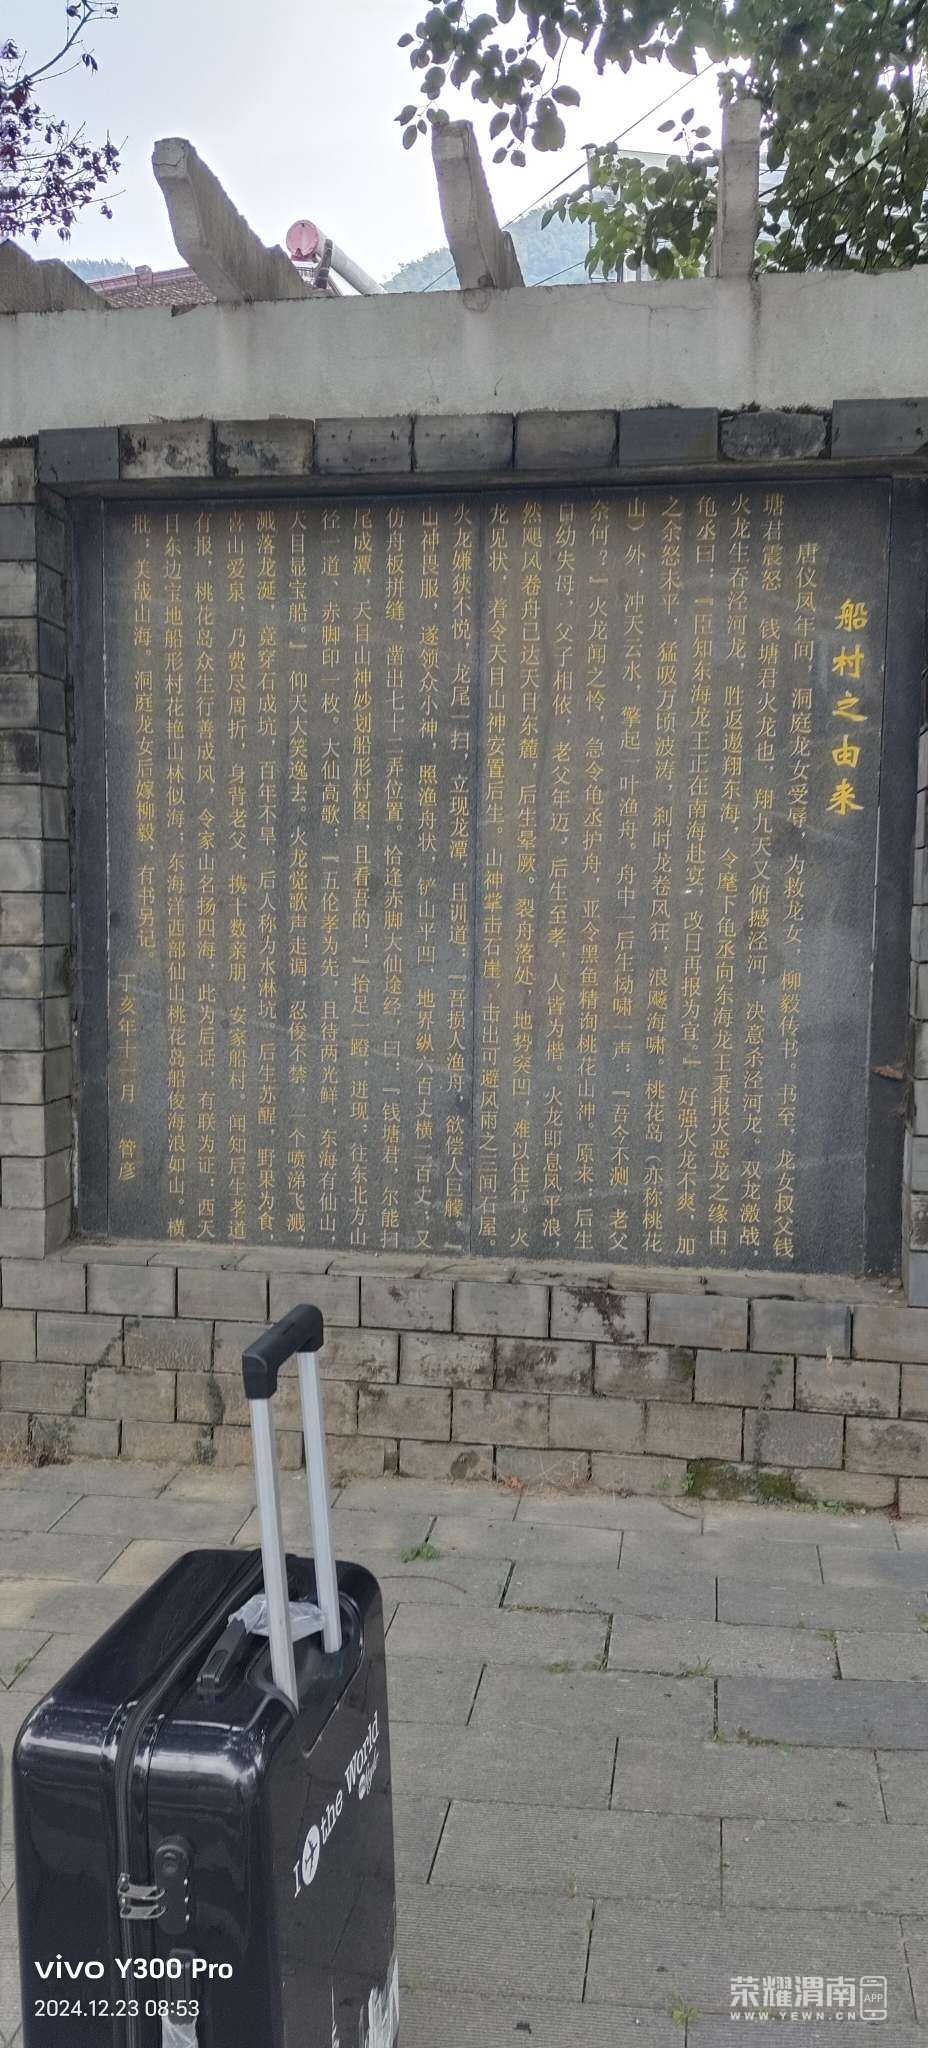 船村之由来
唐仪凤年间，洞庭龙女受辱，为救龙女，柳毅传书。书至，龙女叔父钱
塘君震怒 钱塘君火龙也，翔九天又俯撼泾河，决意杀泾河龙。双龙激战，
火龙生吞泾河龙，胜返遨翔东海，令麾下龟丞向东海龙王秉报灭恶龙之缘由。
龟丞曰：『臣知东海龙王正在南海赴宴，改日再报为宜。』好强火龙不爽，加
之余怒未平 猛吸万顷波涛，刹时龙卷风狂，浪飚海啸。桃花岛（亦称桃花
山）外，冲天云水，擎起一叶渔舟。舟中一后生恸啸一声：『吾今不测，老父
奈何？』火龙闻之怜，急令龟丞护舟，亚令黑鱼精询桃花山神。原来；后生
自幼失母，父子相依，老父年迈，后生至孝，人皆为楷。火龙即息风平浪，
然飓风卷舟已达天目东麓，后生晕厥。裂舟落处，地势突凹，难以住行。火
龙见状，着令天目山神安置后生。山神掌击石崖，击出可避风雨之三间石屋。
火龙嫌狭不悦，龙尾一扫，立现龙潭，且训道：『吾损人渔舟，欲偿人巨艨。』
山神畏服，遂领众小神，照渔舟状，铲山平凹，地界纵六百丈横一百丈；又
仿舟板拼缝，凿出七十二弄位置。恰逢赤脚大仙途经，曰：『钱塘君，尔能扫
尾成潭，天目山神妙划船形村图，且看吾的！』抬足一蹬，迸现；往东北方山
径一道、赤脚印一枚。大仙高歌：『五伦孝为先，且待两光鲜，东海有仙山，
天目显宝船。』仰天大笑逸去。火龙觉歌声走调，忍俊不禁，一个喷涕飞溅，
溅落龙涎，竟穿石成坑，百年不旱，后人称为水淋坑。后生苏醒，野果为食，
喜山爱泉，乃费尽周折，身背老父，携十数亲朋，安家船村。闻知后生老道
有报，桃花岛众生行善成风，令家山名扬四海，此为后话，有联为证：西天
目东边宝地船形村花艳山林似海；东海洋西部仙山桃花岛船俊海浪如山。横
批；美哉山海。洞庭龙女后嫁柳毅，有书另记。
丁亥年十一月 管彦
I the World
vivo Y300 Pro
2024.12.23 08:53
荣耀渭南 APP
WWW.YEWN.CN